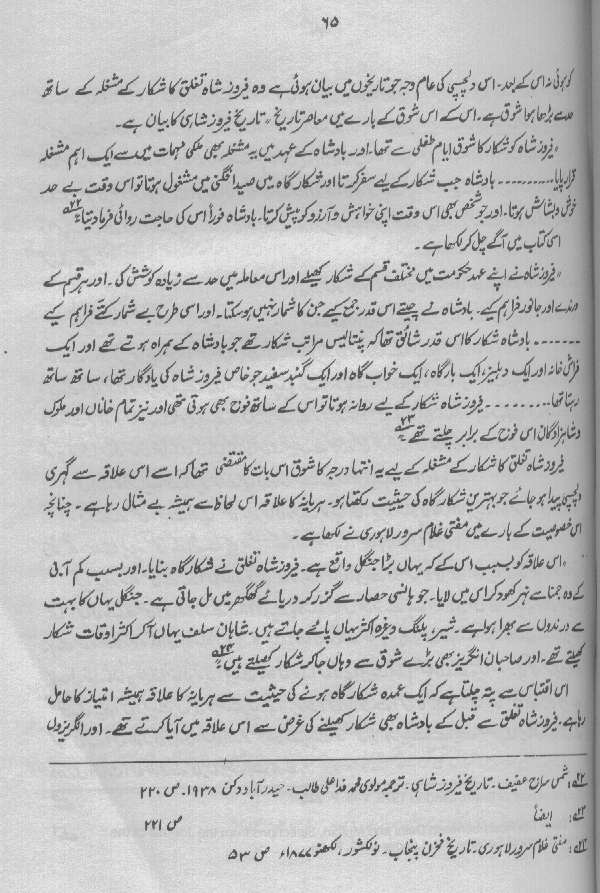 ۶۵
کو ہوئی نہ اس کے بعد۔ اس دلچسپی کی عام وجہ جو تاریخوں میں بیان ہوئی ہے وہ فیروز شاہ تغلق کا شکار کے مشغلہ کے ساتھ
حد سے بڑھا ہوا شوق ہے۔ اس کے اس شوق کے بارے میں معاصر تاریخ "تاریخ فیروز شاہی کا بیان ہے۔
"فیروز شاہ کو شکار کا شوق ایام طفلی سے تھا۔ اور بادشاہ کے عہد میں یہ مشغلہ بھی ملکی مہمات میں سے ایک اہم مشغلہ
قرار پایا.......... بادشاہ جب شکار کے لیے سفر کرتا اور شکار گاہ میں صید افگنی میں مشغول ہوتا تو اس وقت بے حد
خوش و بشاش ہوتا۔ اور جو شخص بھی اس وقت اپنی خواہش و آرزو کو پیش کرتا۔ بادشاہ فوراً اس کی حاجت روائی فرما دیتا"۲۲؎
اسی کتاب میں آگے چل کر لکھا ہے۔
"فیروز شاہ نے اپنے عہد حکومت میں مختلف قسم کے شکار کھیلے اور اس معاملہ میں حد سے زیادہ کوشش کی۔ اور ہر قسم کے
درندے اور جانور فراہم کیے۔ بادشاہ نے چیتے اس قدر جمع کیے جن کا شمار نہیں ہو سکتا۔ اور اسی طرح بے شمار کتے فراہم کیے
....... بادشاہ شکار کا اس قدر شائق تھا کہ پنتالیس مراتب شکار تھے جو بادشاہ کے ہمراہ ہوتے تھے اور ایک
فراش خانہ اور ایک دہلیز، ایک بارگاہ، ایک خواب گاہ اور ایک گنبد سفید جو خاص فیروز شاہ کی یادگار تھا، ساتھ ساتھ
رہتا تھا........ فیروز شاہ شکار کے لیے روانہ ہوتا تو اس کے ساتھ فوج بھی ہوتی تھی اور نیز تمام خاناں اور ملوک
و شاہزادگان اس فوج کے برابر چلتے تھے"۲۳؎
فیروز شاہ تغلق کا شکار کے مشغلہ کے لیے یہ انتہا درجہ کا شوق اس بات کا مقتضی تھا کہ اسے اس علاقہ سے گہری
دلچسپی پیدا ہو جائے جو بہترین شکار گاہ کی حیثیت رکھتا ہو۔ ہریانہ کا علاقہ اس لحاظ سے ہمیشہ بے مثال رہا ہے۔ چنانچہ
اس خصوصیت کے بارے میں مفتی غلام سرور لاہوری نے لکھا ہے۔
"اس علاقہ کو بسبب اس کے کہ یہاں بڑا جنگل واقع ہے۔ فیروز شاہ تغلق نے شکار گاہ بنایا۔ اور بسبب کم آبی
کے وہ جمنا سے نہر کھود کر اس میں لایا۔ جو ہانسی حصار سے گزر کر دریائے گھگھر میں مل جاتی ہے۔ جنگل یہاں کا بہت
سے درندوں سے بھرا ہوا ہے۔ شیر، پلنگ وغیرہ اکثر یہاں پائے جاتے ہیں۔ شاہان سلف یہاں آ کر اکثر اوقات شکار
کھیلتے تھے۔ اور صاحبان انگریز بھی بڑے شوق سے وہاں جا کر شکار کھیلتے ہیں"۲۴؎
اس اقتباس سے پتہ چلتا ہے کہ ایک عمدہ شکار گاہ ہونے کی حیثیت سے ہریانہ کا علاقہ ہمیشہ امتیاز کا حامل
رہا ہے۔ فیروز شاہ تغلق سے قبل کے بادشاہ بھی شکار کھیلنے کی غرض سے اس علاقہ میں آیا کرتے تھے۔ اور انگریزوں
۲۲؎: شمس سراج عفیف۔ تاریخ فیروز شاہی۔ ترجمہ مولوی محمد فدا علی طالب۔ حیدر آباد دکن ۱۹۳۸۔ ص ۲۲۰
۲۳؎: ایضاً ص ۲۲۱
۲۴؎: مفتی غلام سرور لاہوری۔ تاریخ مخزن پنجاب۔ نولکشور، لکھنو ۱۸۷۷ء ص ۵۳